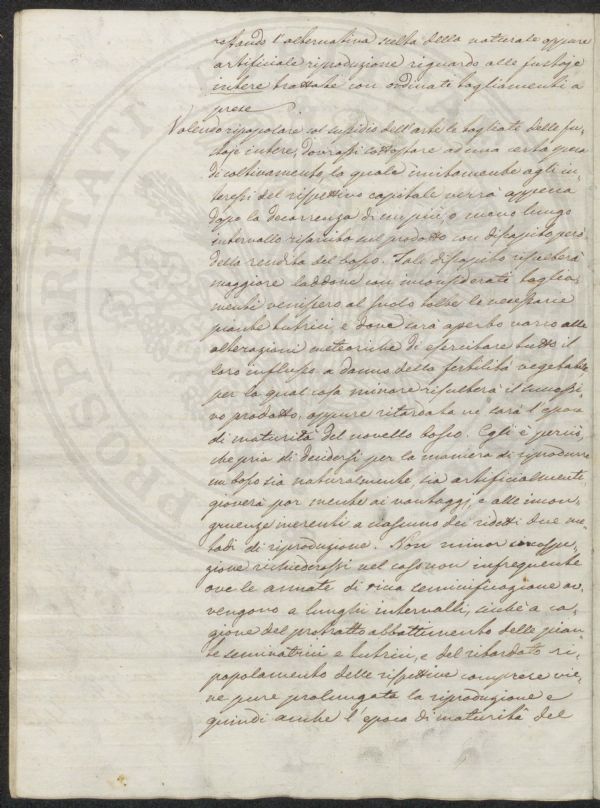 refando l'alternativa scelta della naturale oppure
artificiale riproduzione riguardo alle fustaje
intere trattate con ordinati tagliamenti a
prese
Volendo ripopolare col sussidio dell'arte le tagliate delle fu-
staje intere, dovrassi sottostare ad una certa spesa
di coltivamento, la quale unitamente agli in-
teressi del rispettivo capitale verrà appena
dopo la decorrenza di un più, o meno lungo
intervallo risarcita sul prodotto con discapito però
della rendita del bosco. Tale discapito risulterà
maggiore laddove con inconsiderati taglia-
menti venissero al suolo tolte le necessarie
piante tutrici, e dove sarà aperto varco alle
alterazioni meteoriche di esercitare tutto il
loro influsso a danno della fertilità vegetabile
per la qual cosa minore risulterà il successi-
vo prodotto, oppure ritardata ne sarà l'epoca
di maturità del novello bosco. Egli è perciò,
che pria di decidersi per la maniera di riprodurre
un bosco sia naturalmente, sia artificialmente
gioverà por mente ai vantaggi, e alle incon-
gruenze inerenti a ciascuno dei ridetti due me-
todi di riproduzione. Non minor
zione richiederassi nel caso non infrequente
ove le annate di ricca seminificazione av-
vengono a lunghi intervalli, sicchè a ca-
gione del protratto abbattimento delle pian-
te seminatrici e tutrici, e del ritardato ri-
popolamento delle rispettive comprese vie-
ne pure prolungata la riproduzione e
quindi anche l'epoca di maturità del
PROSPERITATI